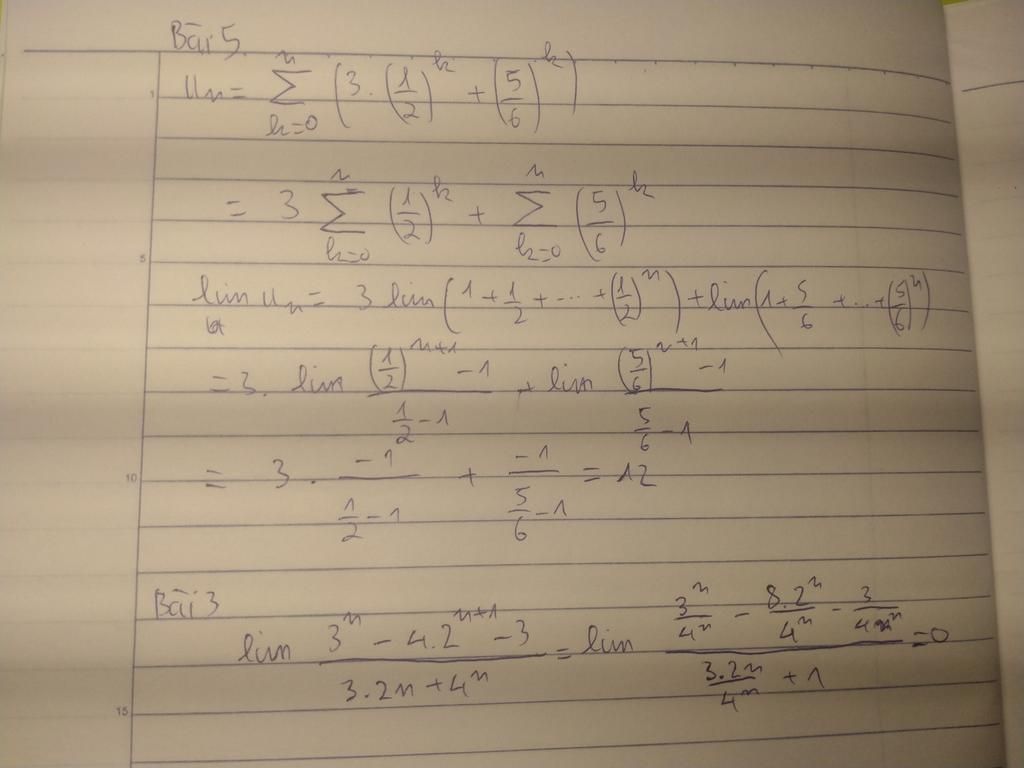 Bài 5
uₙ = ∑_{k=0}^{n} (3.(1/2)^k + (5/6)^k)
= 3 ∑_{k=0}^{n} (1/2)^k + ∑_{k=0}^{n} (5/6)^k
lim uₙ = 3 lim (1 + 1/2 + ... + (1/2)^n) + lim (1 + 5/6 + ... + (5/6)^n)
= 3. lim ((1/2)^{n+1} - 1)/(1/2 - 1) + lim ((5/6)^{n+1} - 1)/(5/6 - 1)
= 3 . (-1)/(1/2 - 1) + (-1)/(5/6 - 1) = 12
Bài 3
lim (3^n - 4.2^{n+1} - 3)/(3.2n + 4^n) = lim (3^n/4^n - 8.2^n/4^n - 3/4^n)/(3.2n/4^n + 1) = 0
1
5
10
15